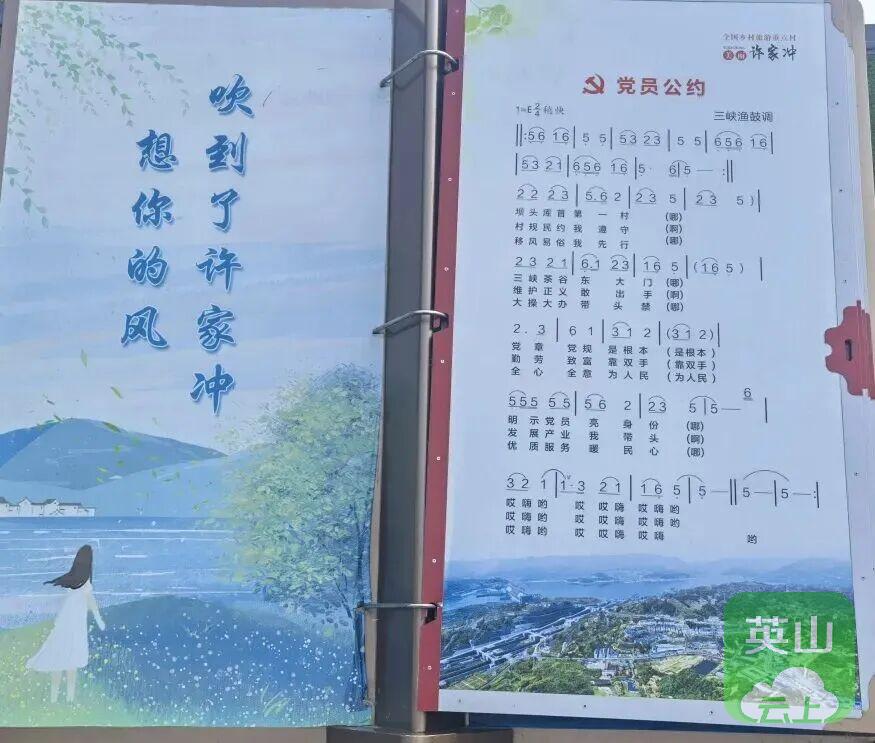 想你的风
吹到了许家冲
全国乡村旅游重点村
美丽 许家冲
党员公约
1=E 2/4 稍快
三峡渔鼓调
‖:56 16 | 5 5 | 53 23 | 5 5 | 656 16 |
| 53 21 | 656 16 | 5· 6 | 5 — :‖
22 23 | 5.6 2 | 23 5 | 23 5 ) |
坝头库首 第 一 村 (哪)
村规民约 我 遵 守 (啊)
移风易俗 我 先 行 (哪)
23 21 | 61 23 | 16 5 | (16 5) |
三峡茶谷 东 大 门 (哪)
维护正义 敢 出 手 (啊)
大操大办 带 头 禁 (哪)
2. 3 | 6 1 | 31 2 | (31 2) |
党 章 党 规 是根本 (是根本)
勤 劳 致 富 靠双手 (靠双手)
全 心 全 意 为人民 (为人民)
555 55 | 56 2 | 23 5 | 5 — 6 |
明 示 党员 亮 身 份 (哪)
发 展 产业 我 带 头 (啊)
优 质 服务 暖 民 心 (哪)
32 1 | 1·3 21 | 16 5 | 5 — ‖ 5 — | 5 — :|
哎 嗨 哟 哎 嗨 哎 嗨 哟
哎 嗨 哟 哎 嗨 哎 嗨 哟
哎 嗨 哟 哎 嗨 哎 嗨 哟
英山
云上